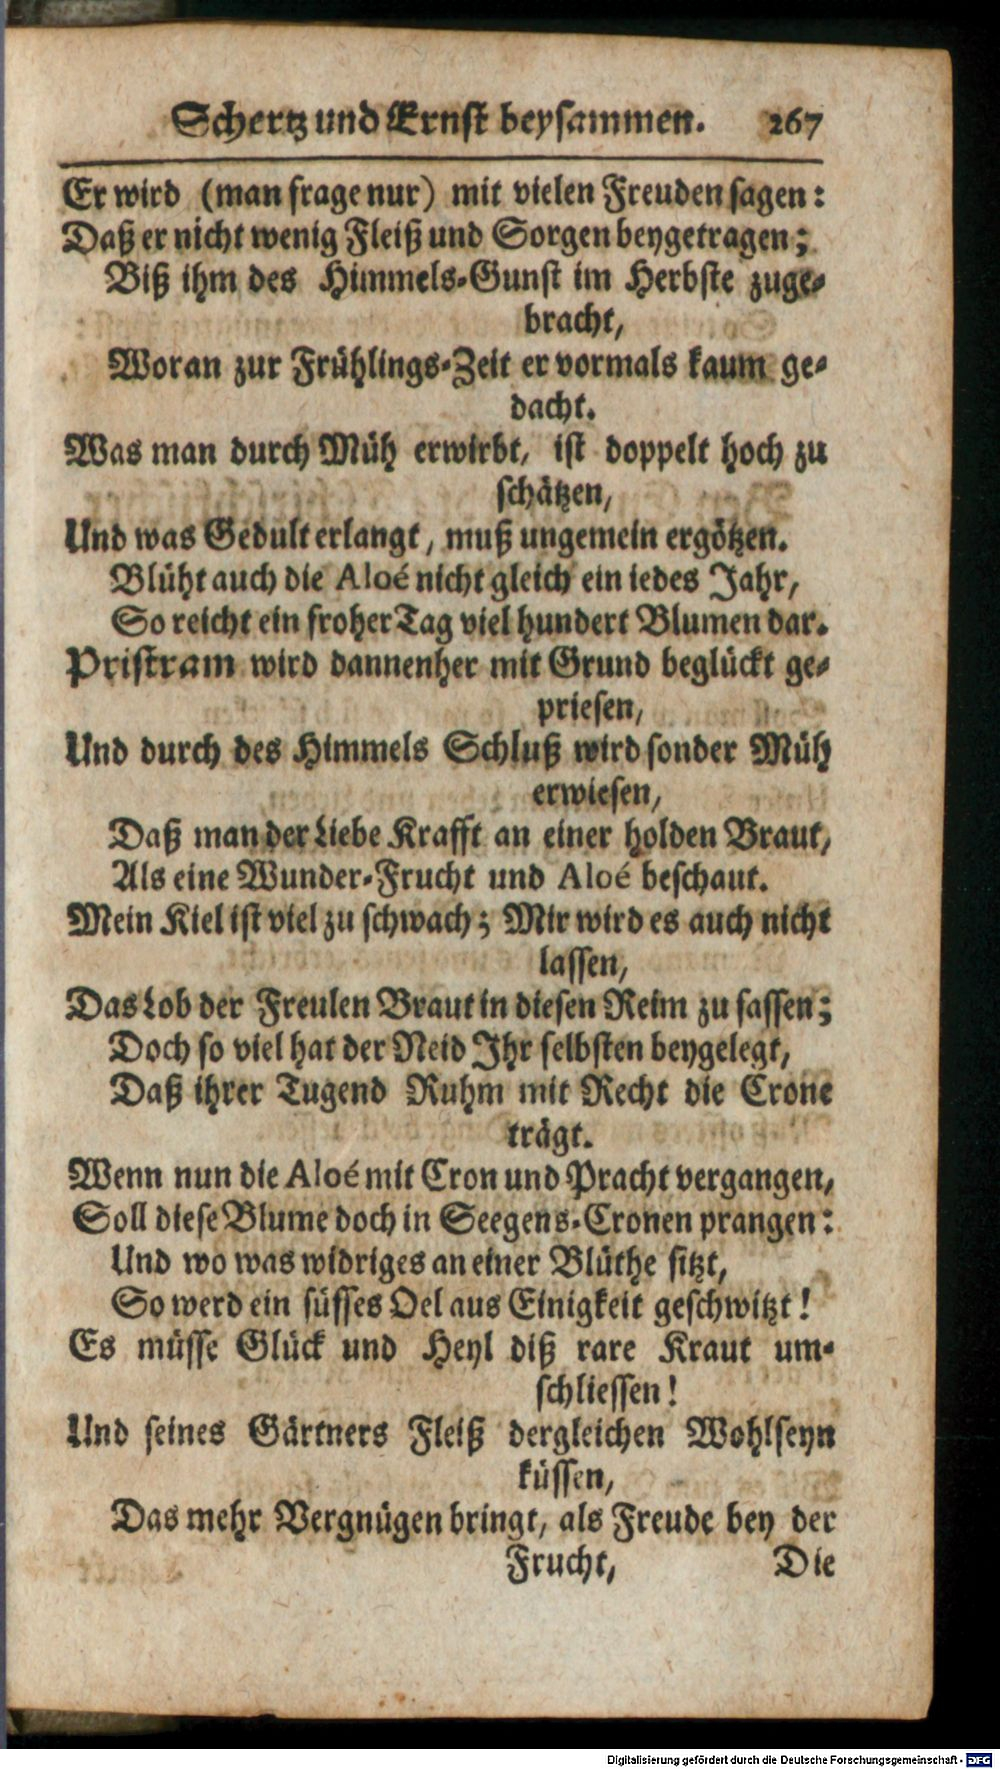 Schertz und Ernst beysammen. 267
Er wird (man frage nur) mit vielen Freuden sagen:
Daß er nicht wenig Fleiß und Sorgen beygetragen;
Biß ihm des Himmels-Gunst im Herbste zuge-
bracht,
Woran zur Frühlings-Zeit er vormals kaum ge-
dacht.
Was man durch Müh erwirbt, ist doppelt hoch zu
schätzen,
Und was Gedult erlangt, muß ungemein ergötzen.
Blüht auch die Aloé nicht gleich ein iedes Jahr,
So reicht ein froher Tag viel hundert Blumen dar.
Pristram wird dannenher mit Grund beglückt ge-
priesen,
Und durch des Himmels Schluß wird sonder Müh
erwiesen,
Daß man der Liebe Krafft an einer holden Braut,
Als eine Wunder-Frucht und Aloé beschaut.
Mein Kiel ist viel zu schwach; Mir wird es auch nicht
lassen,
Das Lob der Freulen Braut in diesen Reim zu fassen;
Doch so viel hat der Neid Ihr selbsten beygelegt,
Daß ihrer Tugend Ruhm mit Recht die Crone
trägt.
Wenn nun die Aloé mit Cron und Pracht vergangen,
Soll diese Blume doch in Seegens-Cronen prangen:
Und wo was widriges an einer Blüthe sitzt,
So werd ein süsses Oel aus Einigkeit geschwitzt!
Es müsse Glück und Heyl diß rare Kraut um-
schliessen!
Und seines Gärtners Fleiß dergleichen Wohlseyn
küssen,
Das mehr Vergnügen bringt, als Freude bey der
Frucht, Die
Digitalisierung gefördert durch die Deutsche Forschungsgemeinschaft - DFG